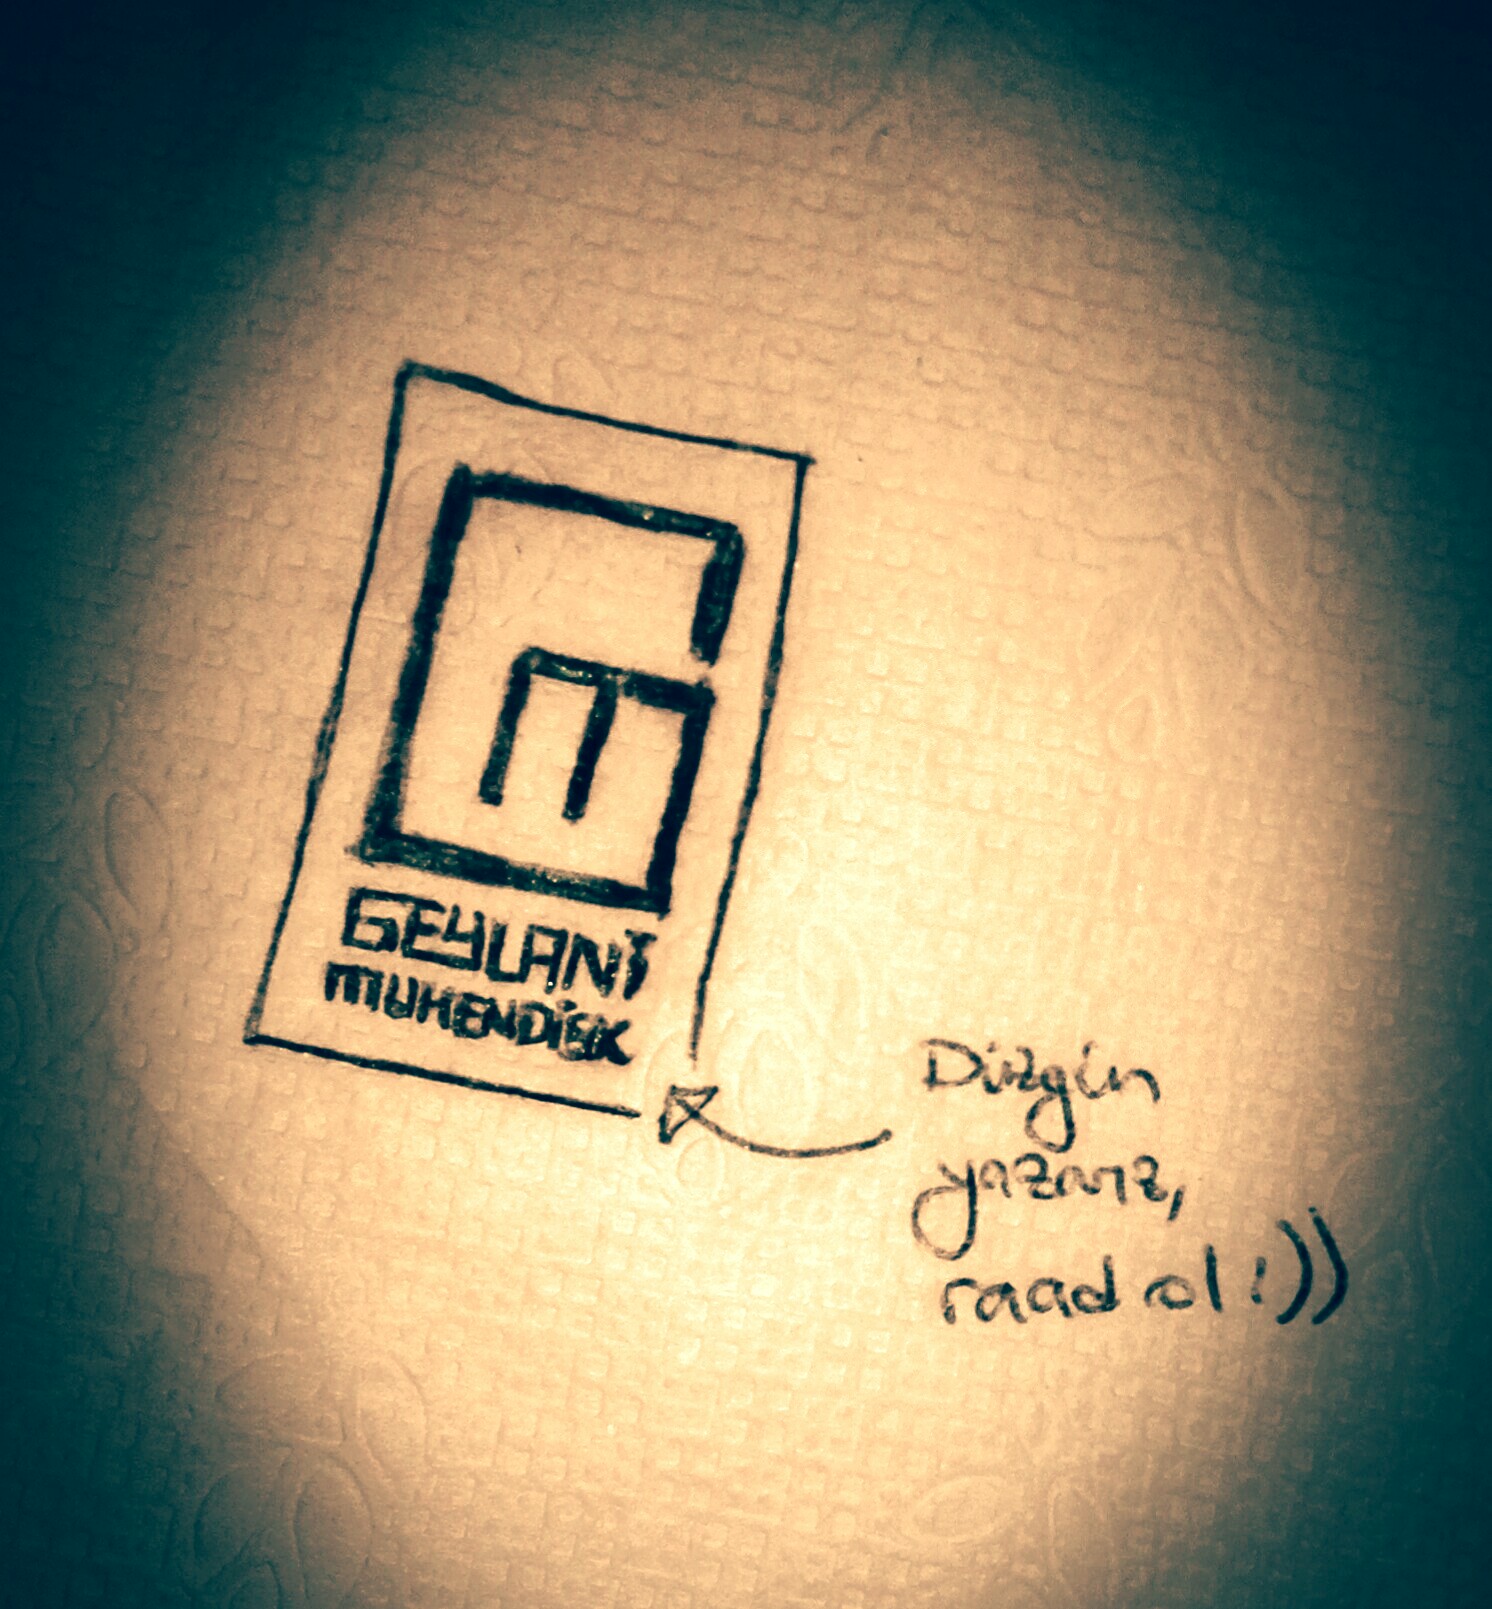 GEYLANİ
MUHENDİSLİK
Düzgün
yazarız,
raad ol :))